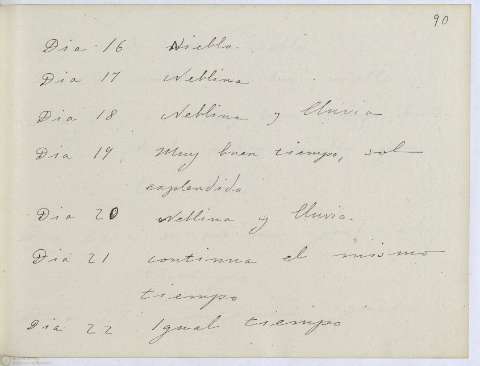 90
Dia 16 Niebla.
Dia 17 Neblina
Dia 18 Neblina y lluvia
Dia 19 Muy buen tiempo, sol
esplendido
Dia 20 Neblina y lluvia.
Dia 21 continua el mismo
tiempo
Dia 22 Igual tiempo